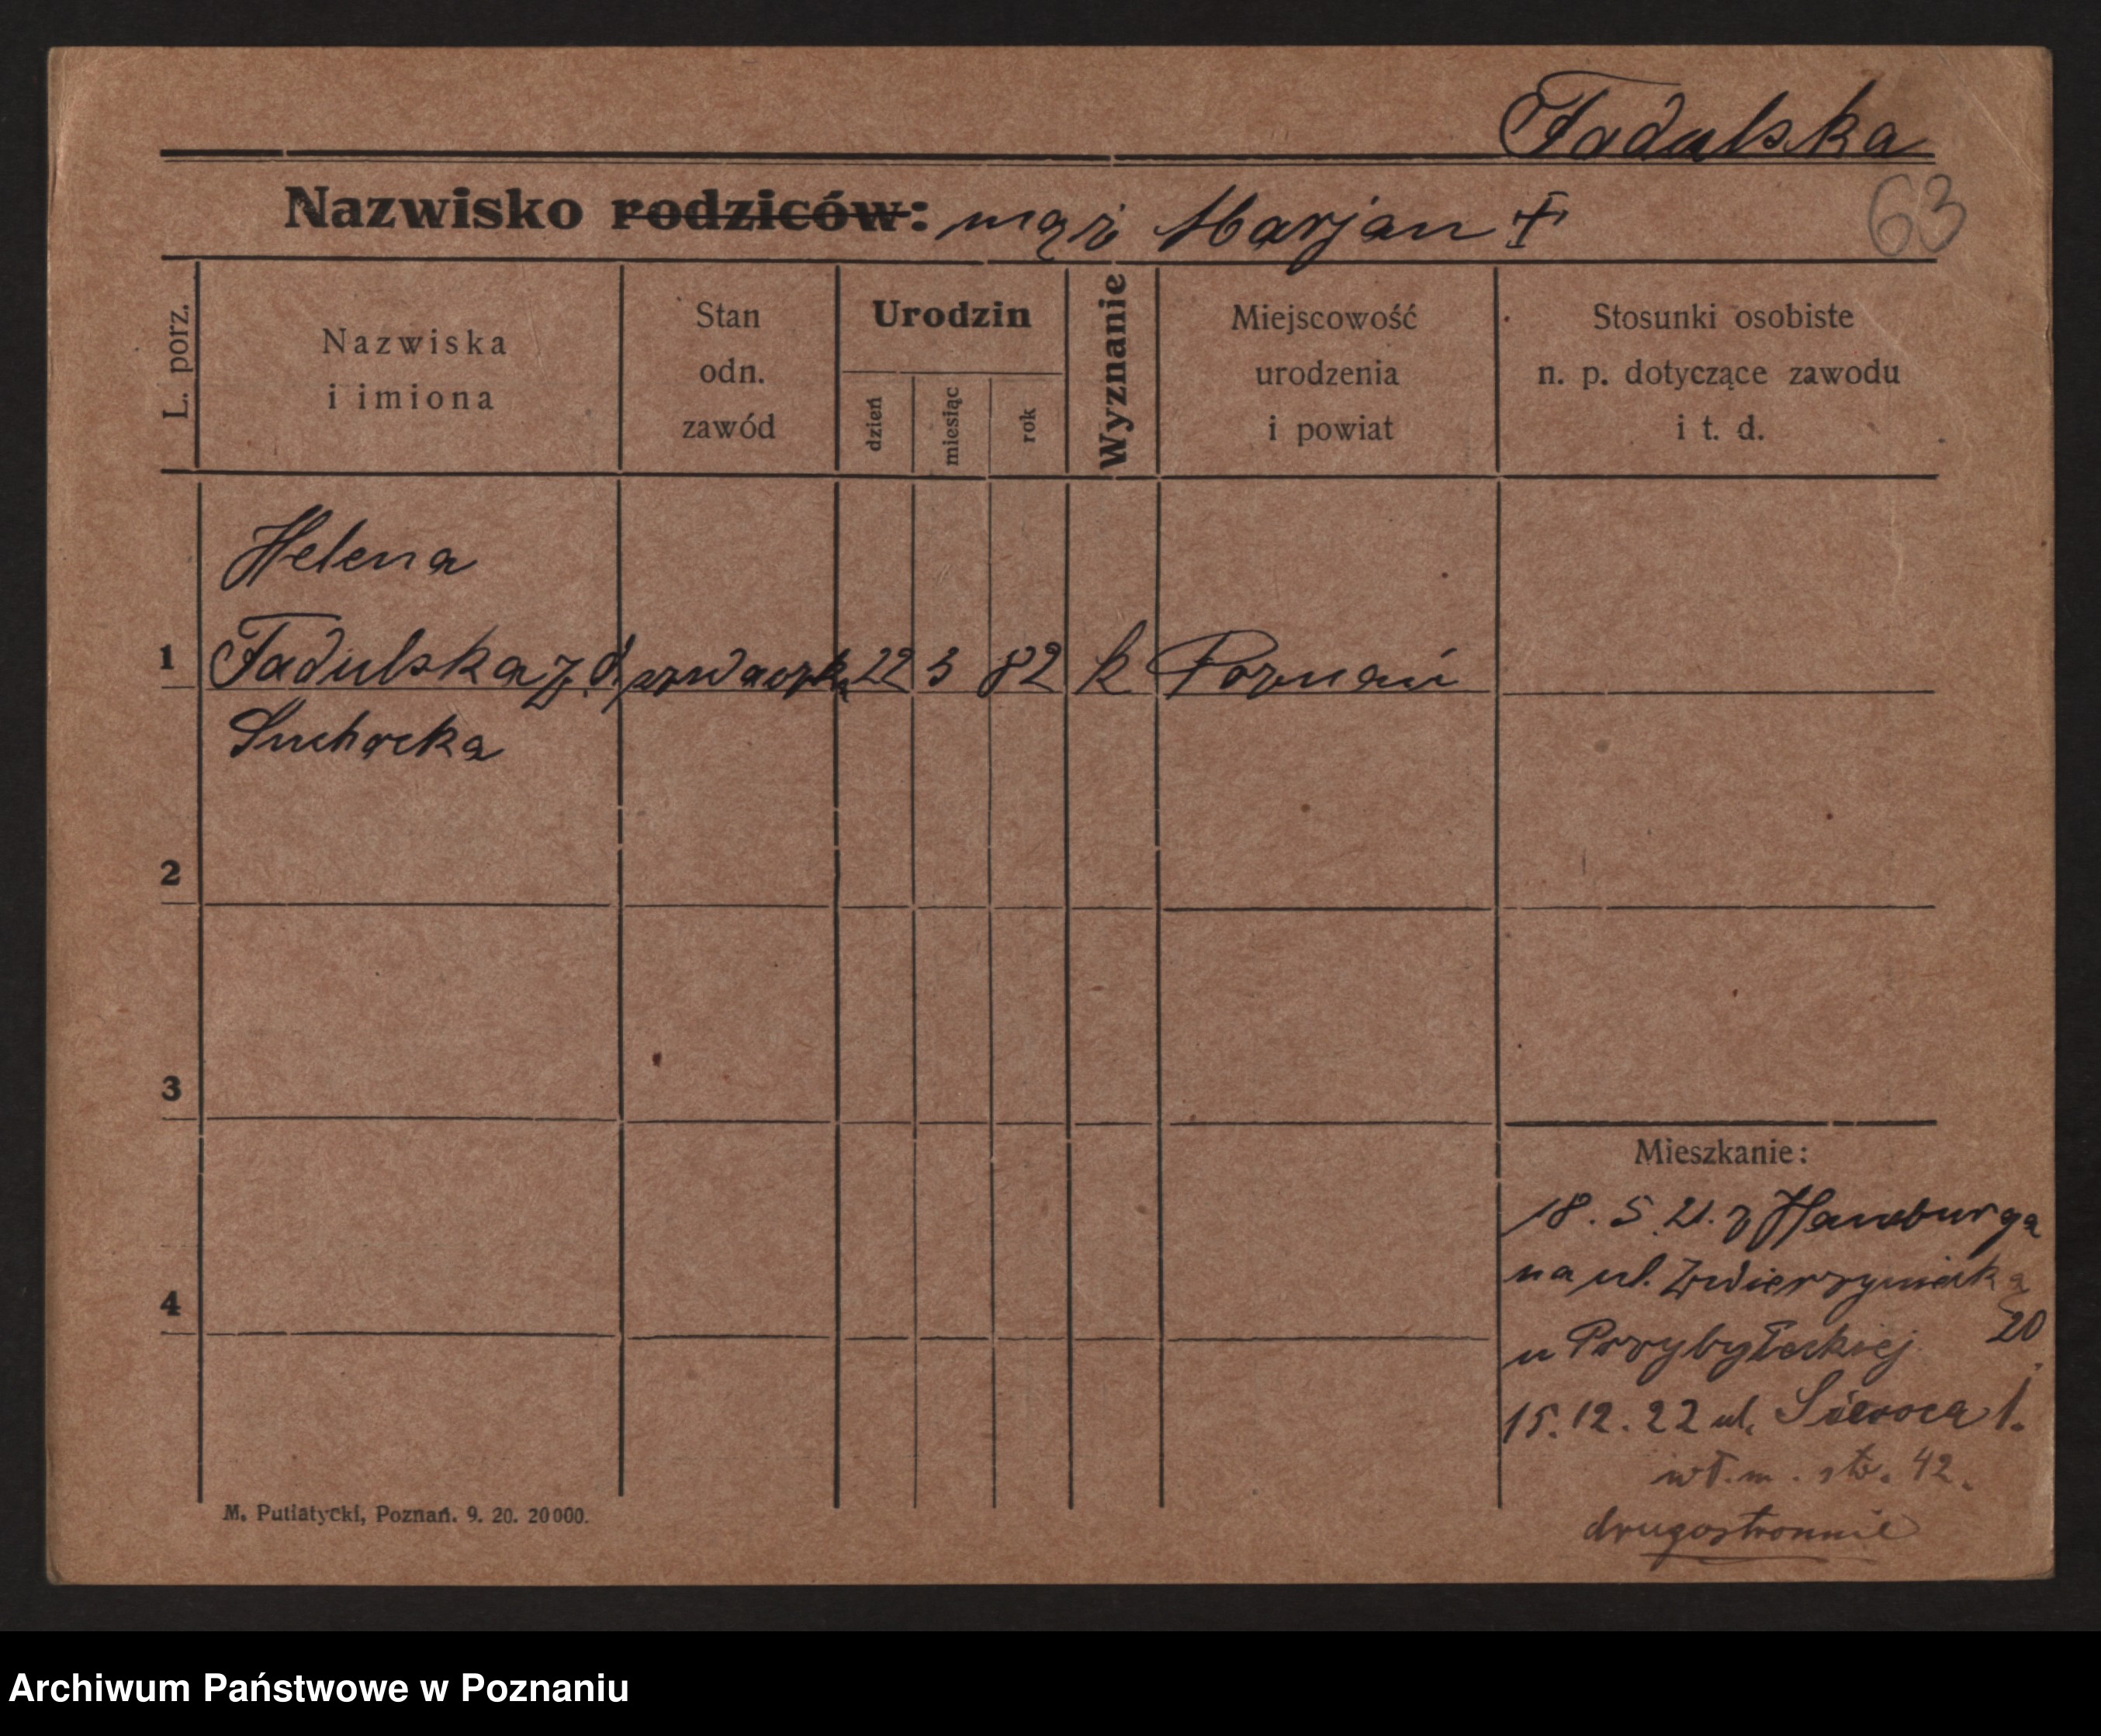 Fadulska
Nazwisko rodziców: mąż Marjan †
63
L. porz.
Nazwiska
i imiona
Stan
odn.
zawód
Urodzin
dzień
miesiąc
rok
Wyznanie
Miejscowość
urodzenia
i powiat
Stosunki osobiste
n. p. dotyczące zawodu
i t. d.
Helena
1 Fadulska z d. szwaczka 22 3 82 k Poznań
Suchocka
2
3
4
Mieszkanie:
18. 5. 21. z Hamburga
na ul. Zwierzyniecką
20
u Przybyłeckiej
15. 12. 22 ul. Sieroca 1.
wł. m. str. 42.
drugostronnie
M. Putiatycki, Poznań. 9. 20. 20000.
Archiwum Państwowe w Poznaniu